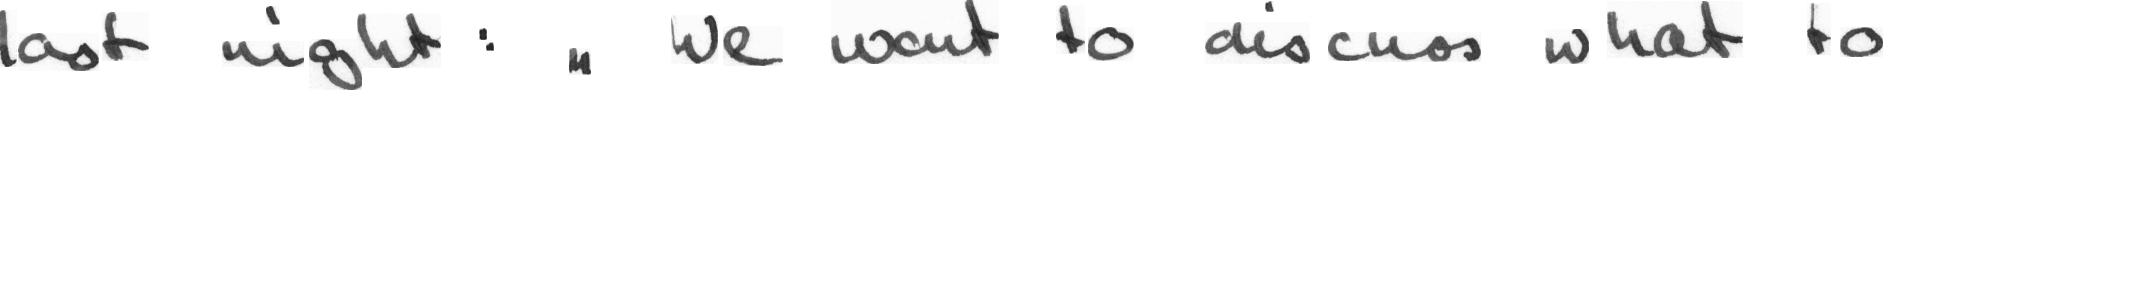 last night: „ We want to discuss what to